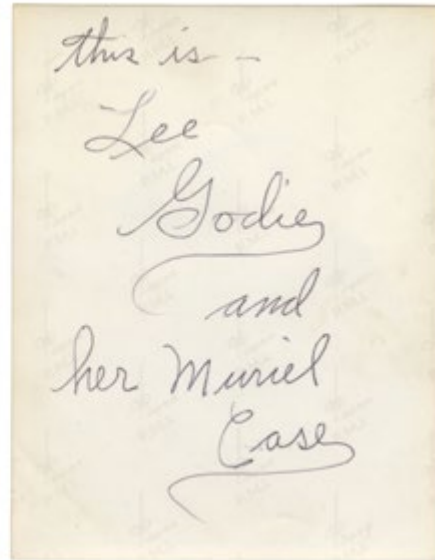 this is -
Lee
Godie
and
her Muriel
Case